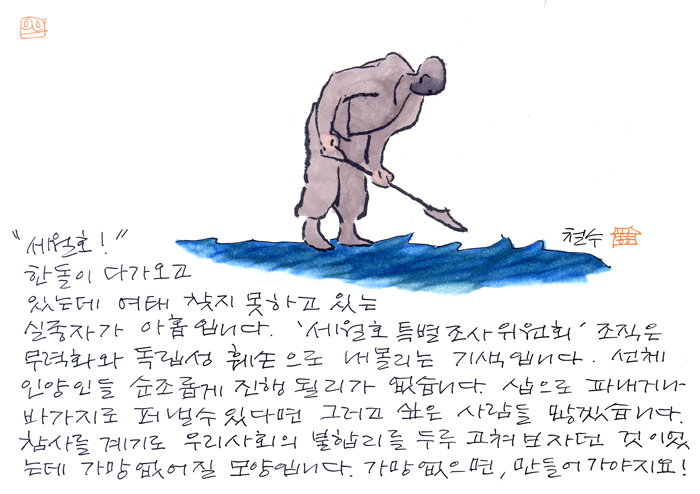 철수
"세월호!"
한돌이 다가오고
있는데 여태 찾지 못하고 있는
실종자가 아홉입니다. '세월호 특별조사위원회' 조직은
무력화와 독립성 훼손으로 내몰리는 기색입니다. 선체
인양인들 순조롭게 진행 될리가 없습니다. 삽으로 파내거나
바가지로 퍼낼수 있다면 그러고 싶은 사람들 많겠습니다.
참사를 계기로 우리사회의 불합리를 두루 고쳐보자던 것이었
는데 가망없어질 모양입니다. 가망없으면, 만들어가야지요!